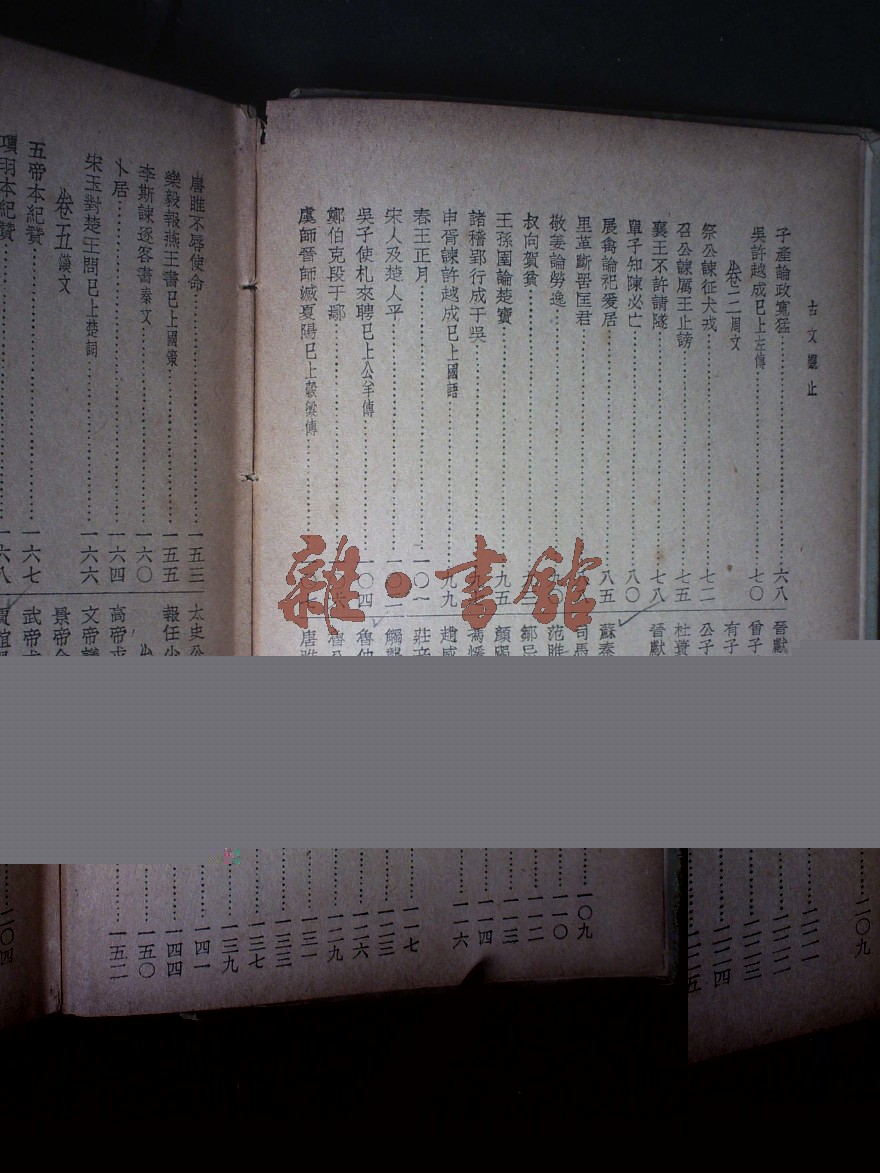 古文觀止
子產論政寬猛 六八
吳許越成已上左傳 七〇
卷三周文
祭公諫征犬戎 七二
召公諫厲王止謗 七五
襄王不許請隧 七八
單子知陳必亡 八〇
展禽論祀爰居 八五
里革斷罟匡君
敬姜論勞逸
叔向賀貧
王孫圉論楚寶 九五
諸稽郢行成于吳
申胥諫許越成已上國語 九九
春王正月 一〇一
宋人及楚人平
吳子使札來聘已上公羊傳 一〇四
鄭伯克段于鄢
虞師晉師滅夏陽已上穀梁傳
晉獻
曾子
有子
公子
杜蕢
晉獻
蘇秦
司馬
范雎
鄒忌
顏斶
馮煖
趙威
莊辛
觸讋
魯仲
魯
唐雎
一〇九
一一〇
一一二
一一三
一一四
一一六
一一七
一二三
一二六
一二九
一三一
一三三
一三七
一三九
一四一
一四四
一五〇
一五二
唐雎不辱使命 一五三
樂毅報燕王書已上國策 一五五
李斯諫逐客書秦文 一六〇
卜居 一六四
宋玉對楚王問已上楚詞 一六六
卷五漢文
五帝本紀贊 一六七
項羽本紀贊 一六八
太史公
報任少
高帝求
文帝議
景帝令
武帝求
二〇四
二〇九
二二一
二二二
二二三
二二四
二二五
雜·書館